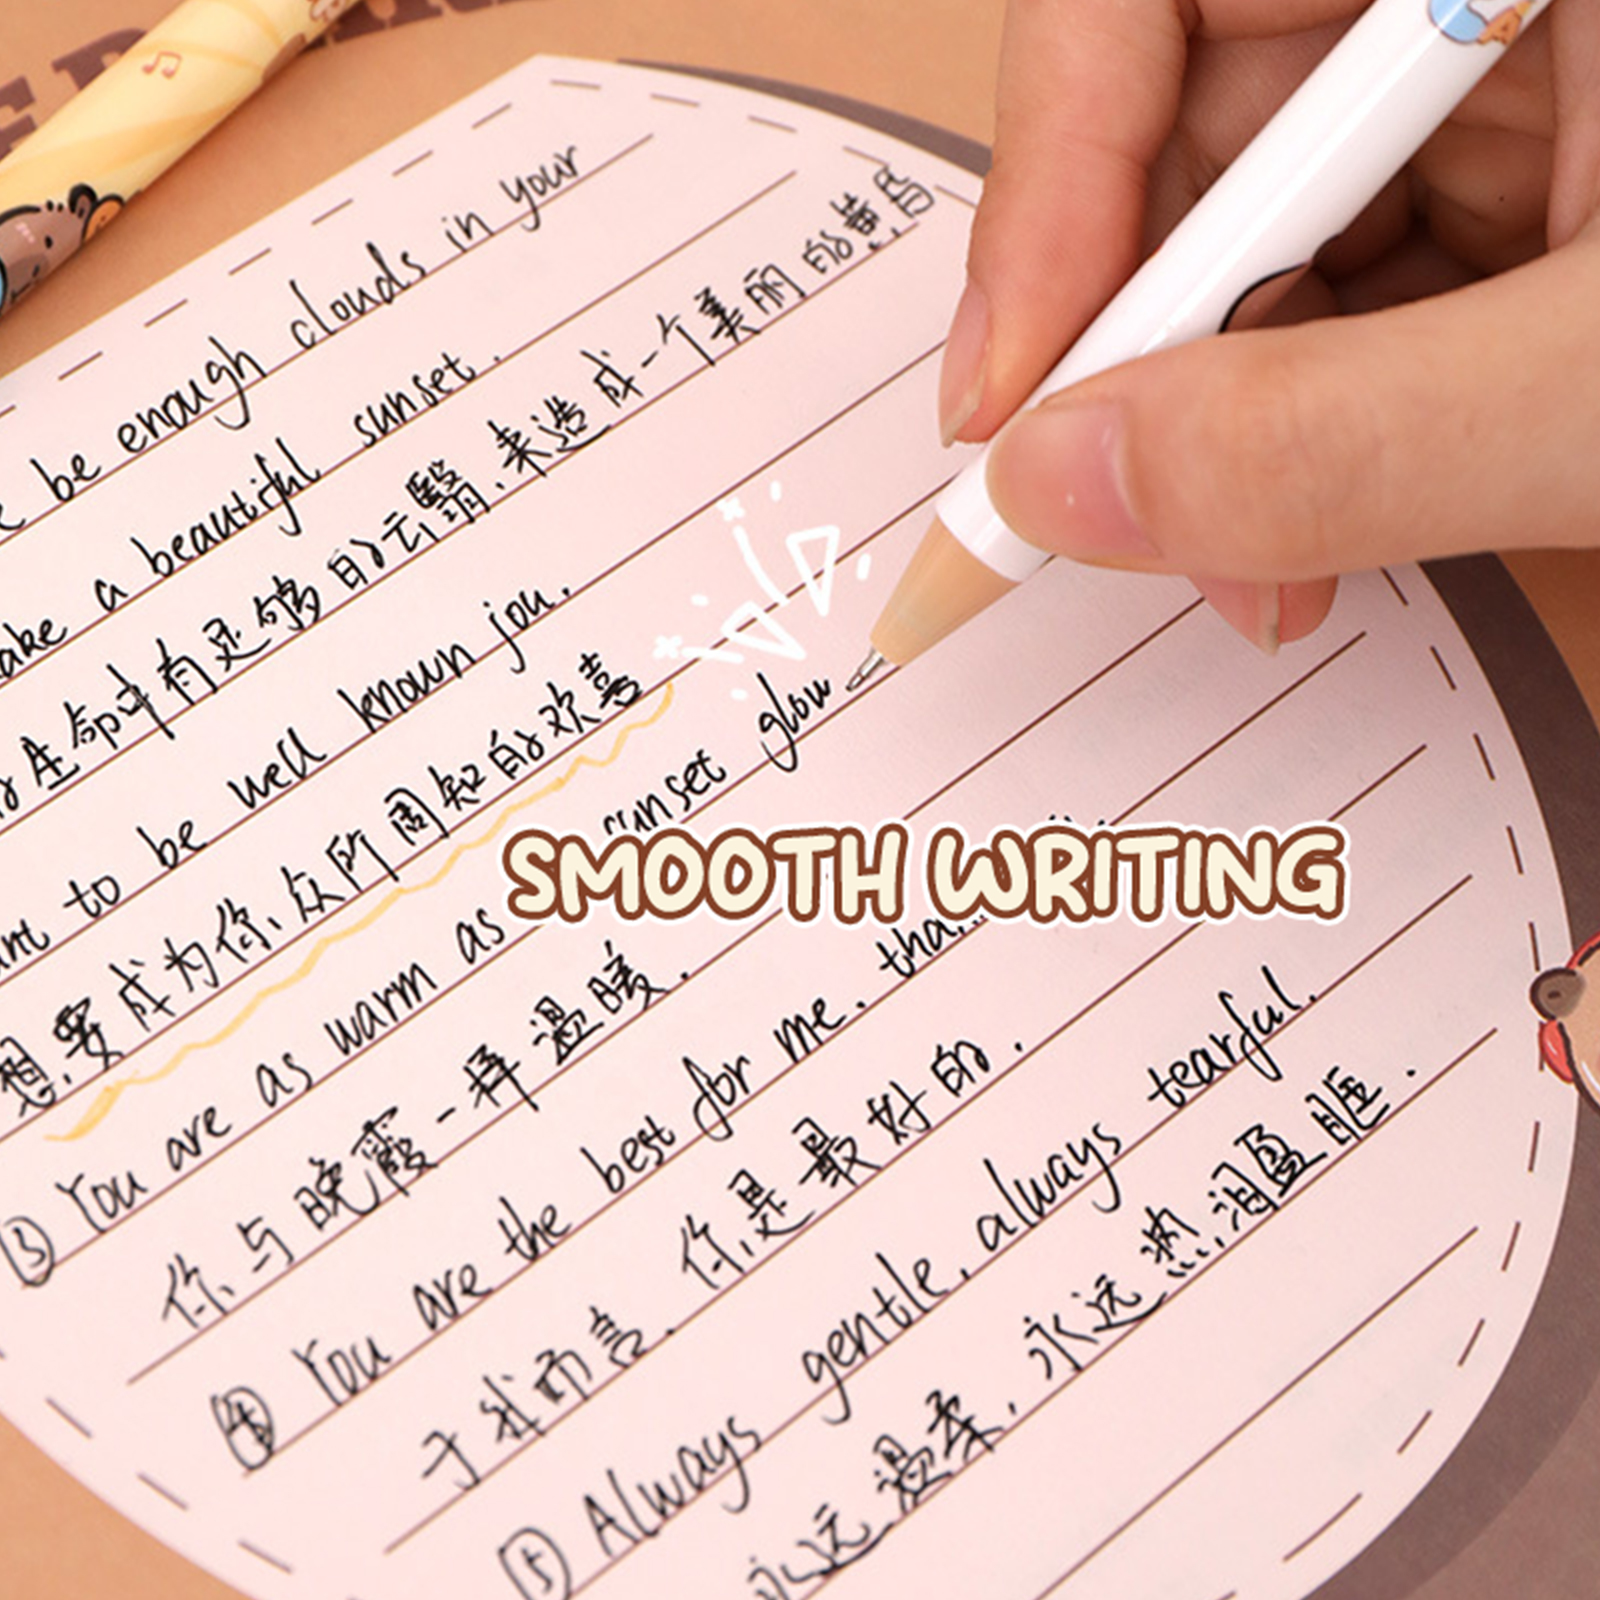 be enough clouds in your
a beautiful sunset.
生命中有足够的云翳,来造成一个美丽的黄昏
to be well known jou.
想要成为你,众所周知的欢喜
③ You are as warm as sunset glow
SMOOTH WRITING
你与晚霞一样温暖.
④ You are the best for me.
于我而言,你是最好的.
⑤ Always gentle, always tearful.
永远温柔,永远热泪盈眶.